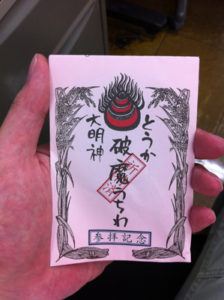 とうか
破魔うちわ
大明神
参拝記念